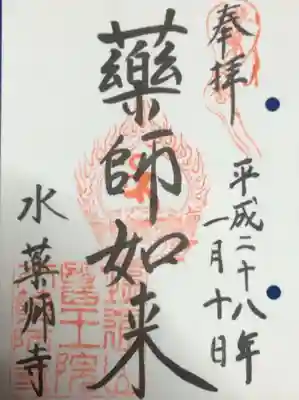 奉拝
平成二十八年
一月十日
藥師如来
水薬師寺
醫王院